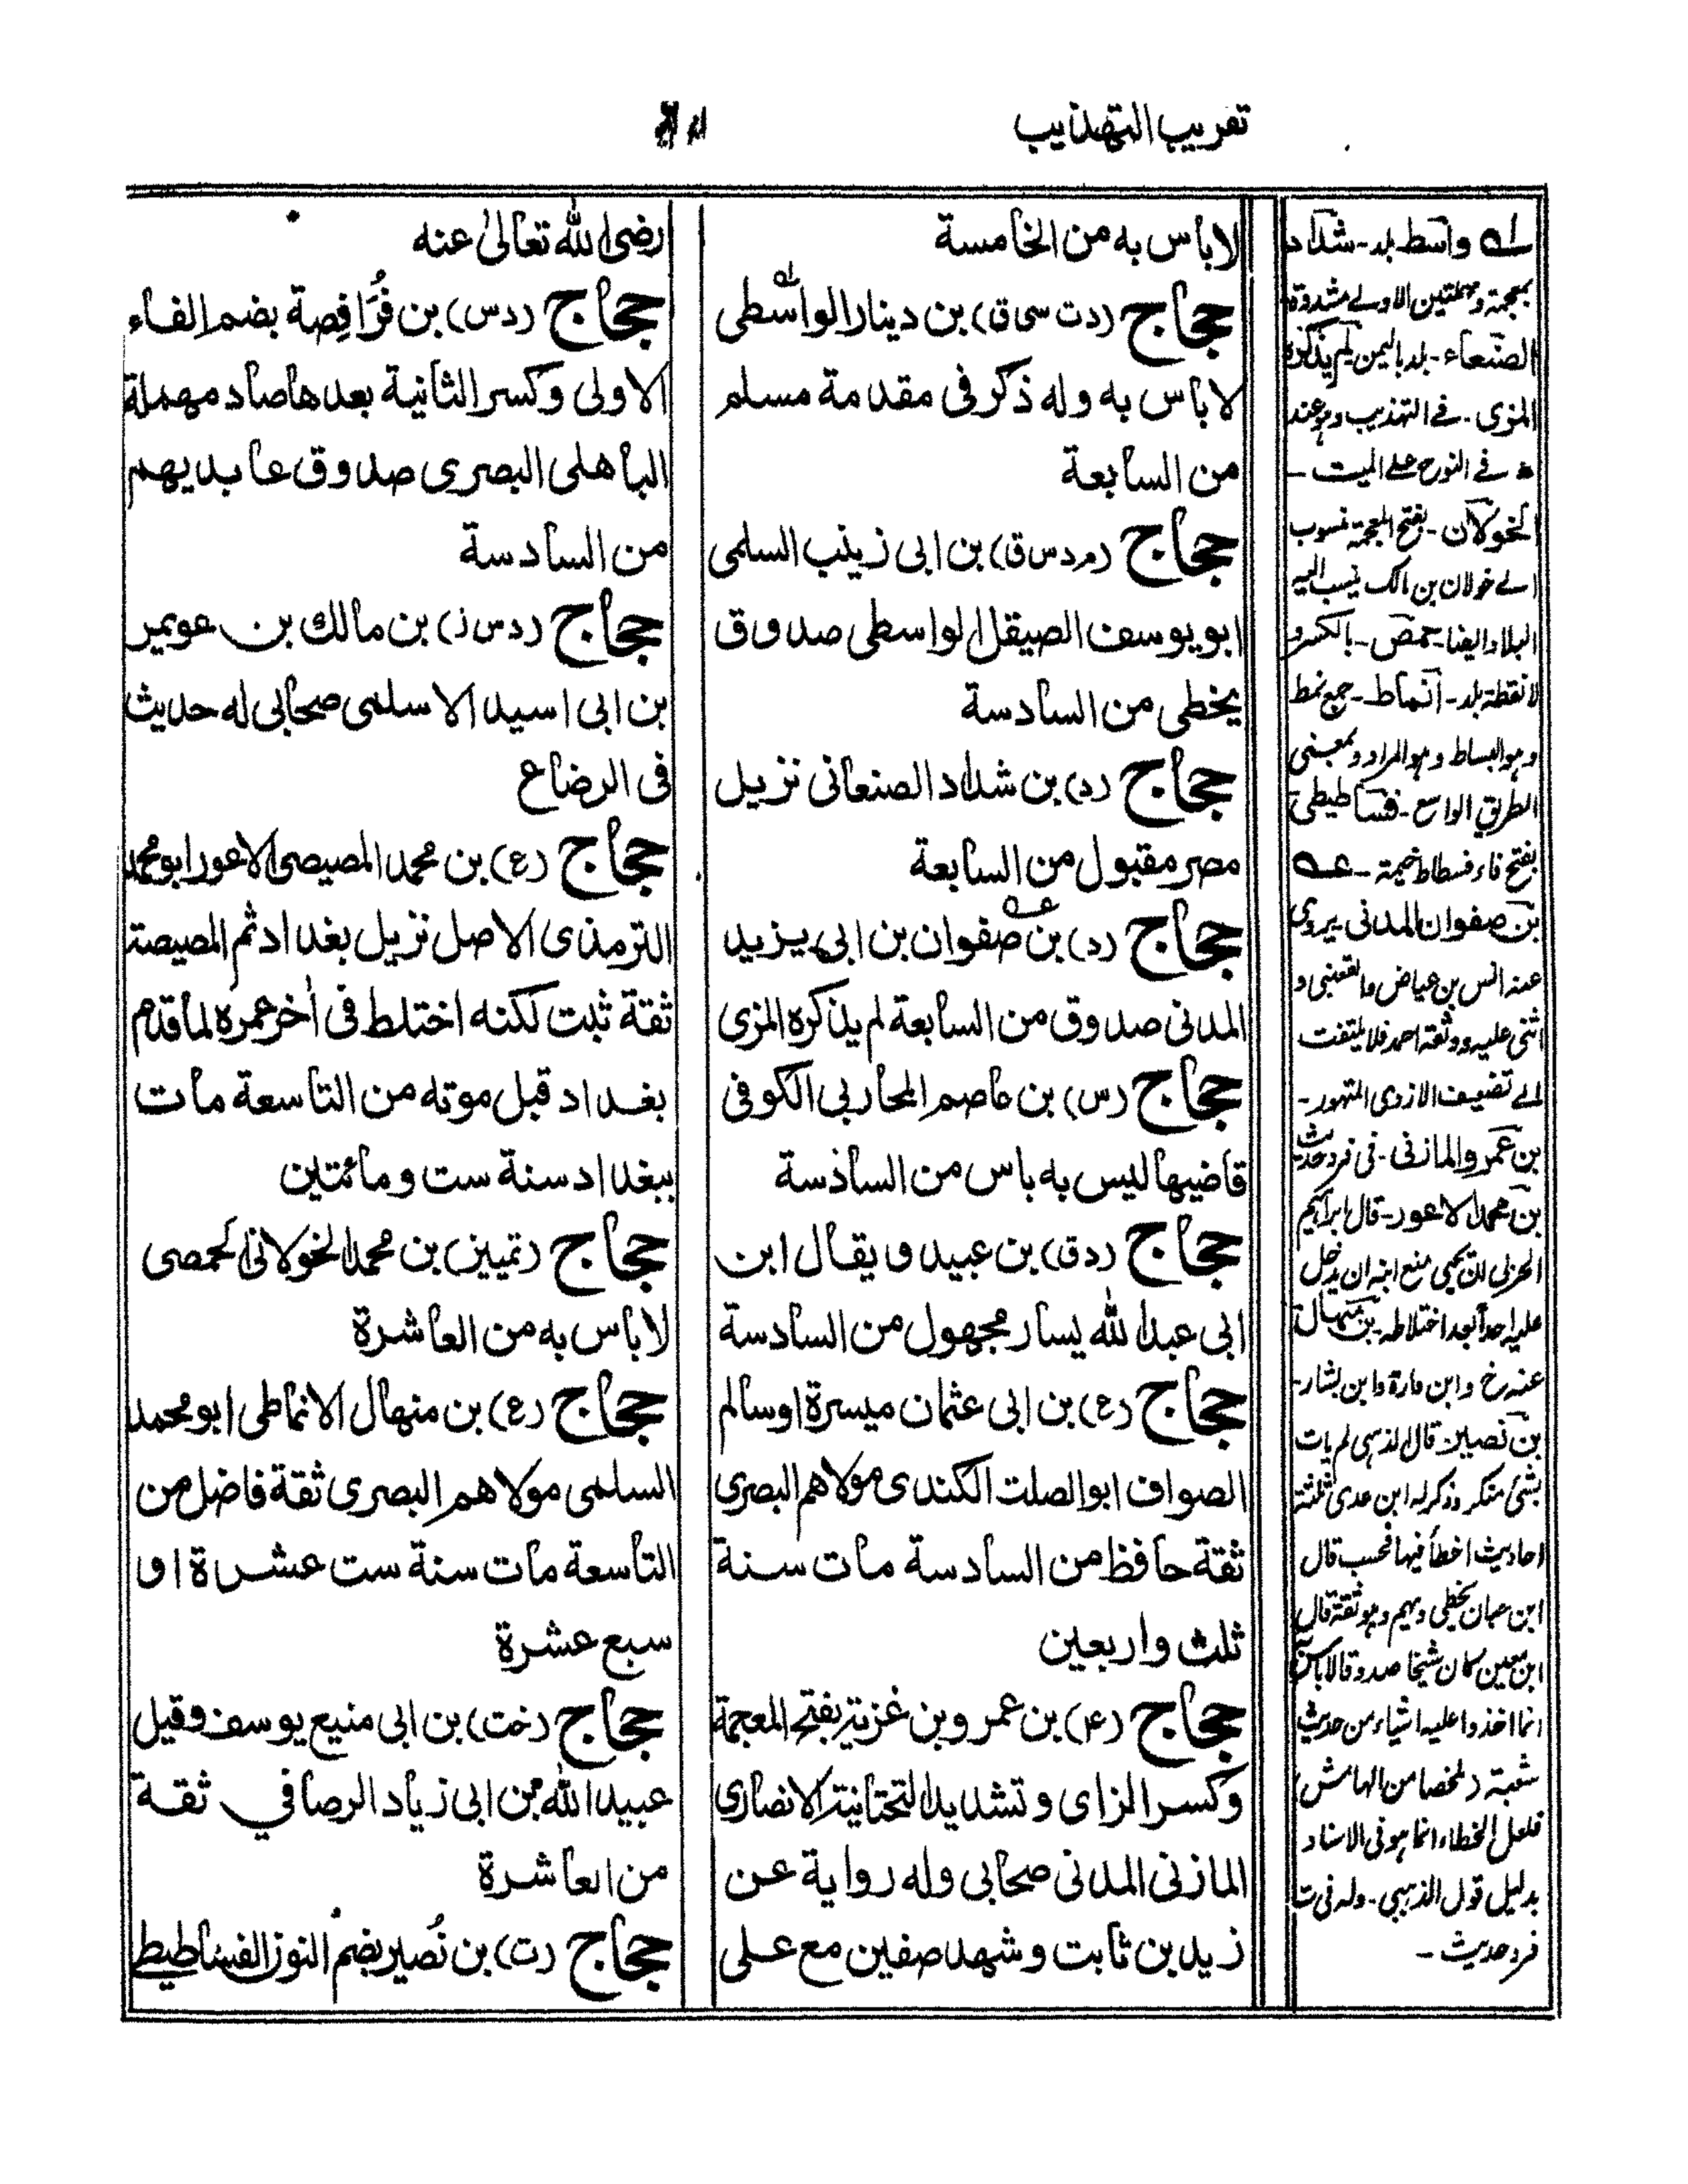 تقريب التهذيب
لاباس به من الخامسة
حجاج (دت سى ق) بن دينار الواسطى
لاباس به وله ذكر فى مقدمة مسلم
من السابعة
حجاج (مد س ق) بن ابى زينب السلمى
ابو يوسف الصيقل الواسطى صدوق
يخطى من السادسة
حجاج (د) بن شداد الصنعانى نزيل
مصر مقبول من السابعة
حجاج (د) بن صفوان بن ابى يزيد
المدنى صدوق من السابعة لم يذكره المزى
حجاج (س) بن عاصم المحاربى الكوفى
قاضيها ليس به باس من السادسة
حجاج (دق) بن عبيد ويقال ابن
ابى عبد الله يسار مجهول من السادسة
حجاج (ع) بن ابى عثمان ميسرة اوسالم
الصواف ابو الصلت الكندى مولاهم البصرى
ثقة حافظ من السادسة مات سنة
ثلث واربعين
حجاج (۴) بن عمرو بن غزية بفتح المعجمة
وكسر الزاى وتشديد التحتانية الانصارى
المازنى المدنى صحابى وله رواية عن
زيد بن ثابت وشهد صفين مع على
رضى الله تعالى عنه
حجاج (دس) بن فُرَافِصة بضم الفاء
الاولى وكسر الثانية بعدها صاد مهملة
الباهلى البصرى صدوق عابد يهم
من السادسة
حجاج (دس ت) بن مالك بن عويمر
بن ابى اسيد الاسلمى صحابى له حديث
فى الرضاع
حجاج (ع) بن محمد المصيصى الاعور ابو محمد
الترمذى الاصل نزيل بغداد ثم المصيصة
ثقة ثبت لكنه اختلط فى أخر عمره لما قدم
بغداد قبل موته من التاسعة مات
ببغداد سنة ست ومائتين
حجاج (تمييز) بن محمد الخولانى الحمصى
لاباس به من العاشرة
حجاج (ع) بن منهال الانماطى ابو محمد
السلمى مولاهم البصرى ثقة فاضل من
التاسعة مات سنة ست عشرة او
سبع عشرة
حجاج (خت) بن ابى منيع يوسف وقيل
عبيد الله بن ابى زياد الرصافي ثقة
من العاشرة
حجاج (ت) بن نُصير بضم النون الفساطيطى
له واسط بلد - شداد
بمعجمة ومهملتين الاولے مشدودة
الصنعاء - بلد باليمن لم يذكره
المزى - فے التهذيب وهو عند
فے النوح على الميت -
الخولان - بفتح المعجمة نسوب
الے خولان بن مالك ينسب اليه
البلاد ايضا - حمص - بالكسر و
لا نقطة بلد - انماط - جمع نمط
وهو البساط وهو المراد وبمعنى
الطريق الواسع - فساطيطى
بفتح فاء فسطاط خيمة - عه
بن صفوان المدنى يروى
عنه انس بن عياض والقعنبى و
اثنى عليه ووثقه احمد فلا يلتفت
الے تضعيف الازدى المتهور -
بن عمرو المازنى - فى فرد حديث
بن محمد الاعور - قال ابراهيم
الحربى ان يحيى منع ابنه ان يدخل
عليه احدا بعد اختلاطه - بن منهال
عنه خ وابن وارة وابن بشار -
بن نصير - قال الذهبى لم يات
بشئ منكر وذكر له ابن عدى ثلثة
احاديث اخطأ فيها فحسب قال
ابن حبان يخطى ويهم وهو ثقة قال
ابن معين كان شيخا صدوقا لاباس
انما اخذوا عليه اشياء من حديث
شعبة ملخصا من الهامش
فلعل الخطاء انما هو فى الاسناد
بدليل قول الذهبى - وله فى ت
فرد حديث -